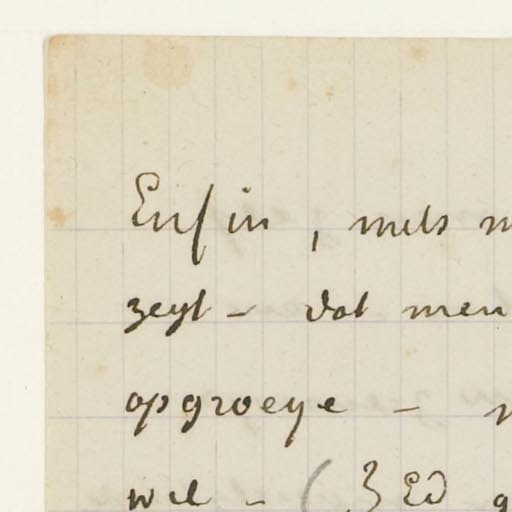 Enfin, mets
zegt – dat men
opgroeye –
wil – (ZEd